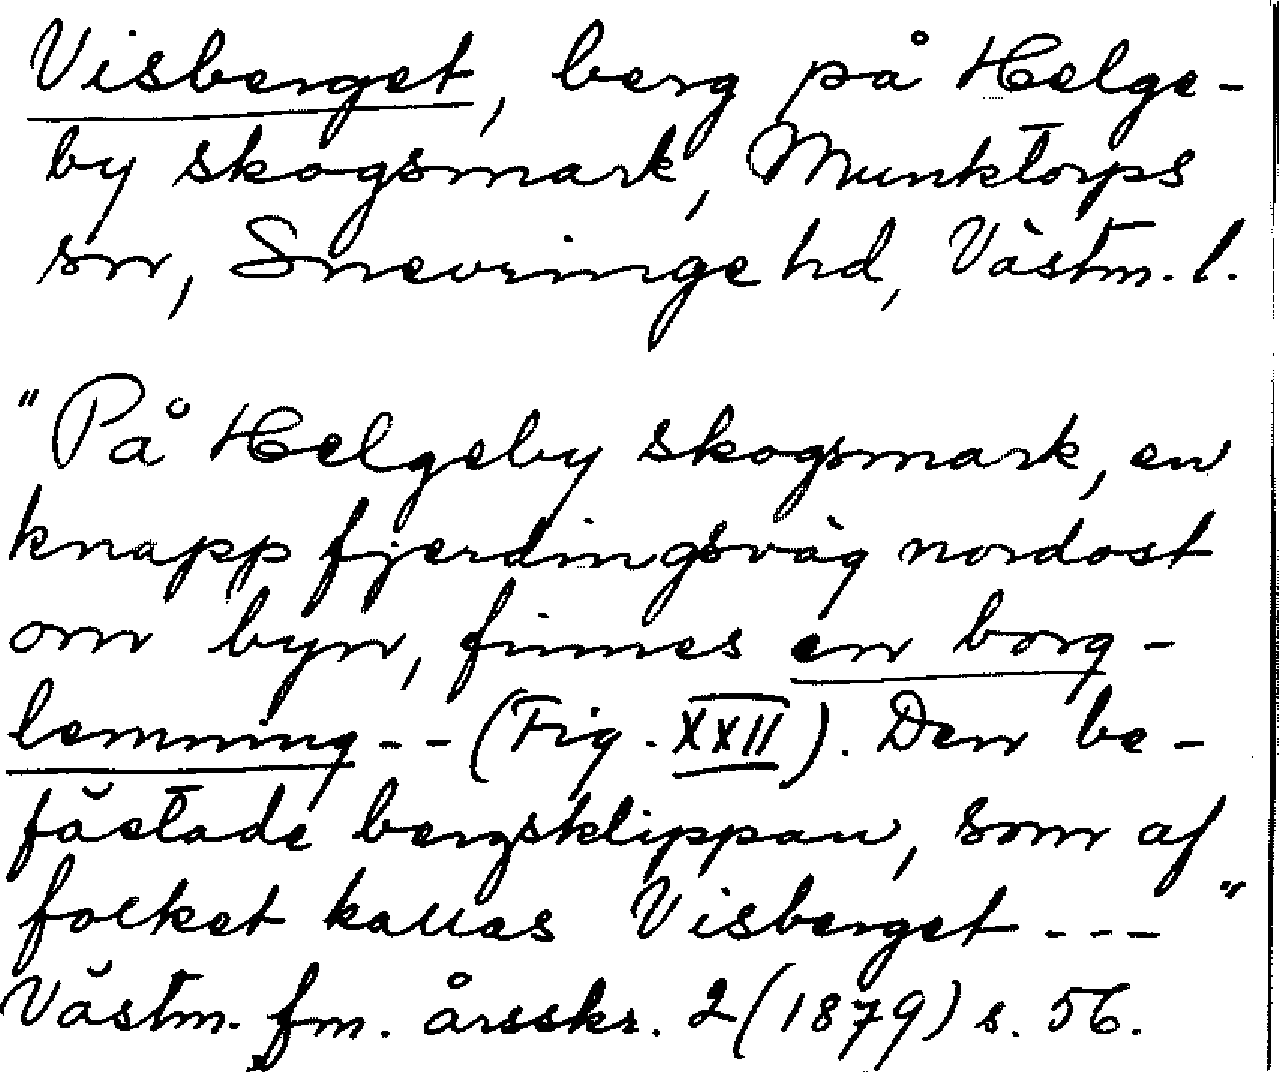 Visberget, berg på Helge-
by skogsmark, Munktorps
sn, Snevringe hd, Västm. l.
"På Helgeby skogsmark, en
knapp fjerdingsväg nordost
om byn, finnes en borg-
lemning -- (Fig. XXII). Den be-
fästade bergsklippan, som af
folket kallas Visberget ---"
Västm. fm. årsskr. 2 (1879) s. 56.